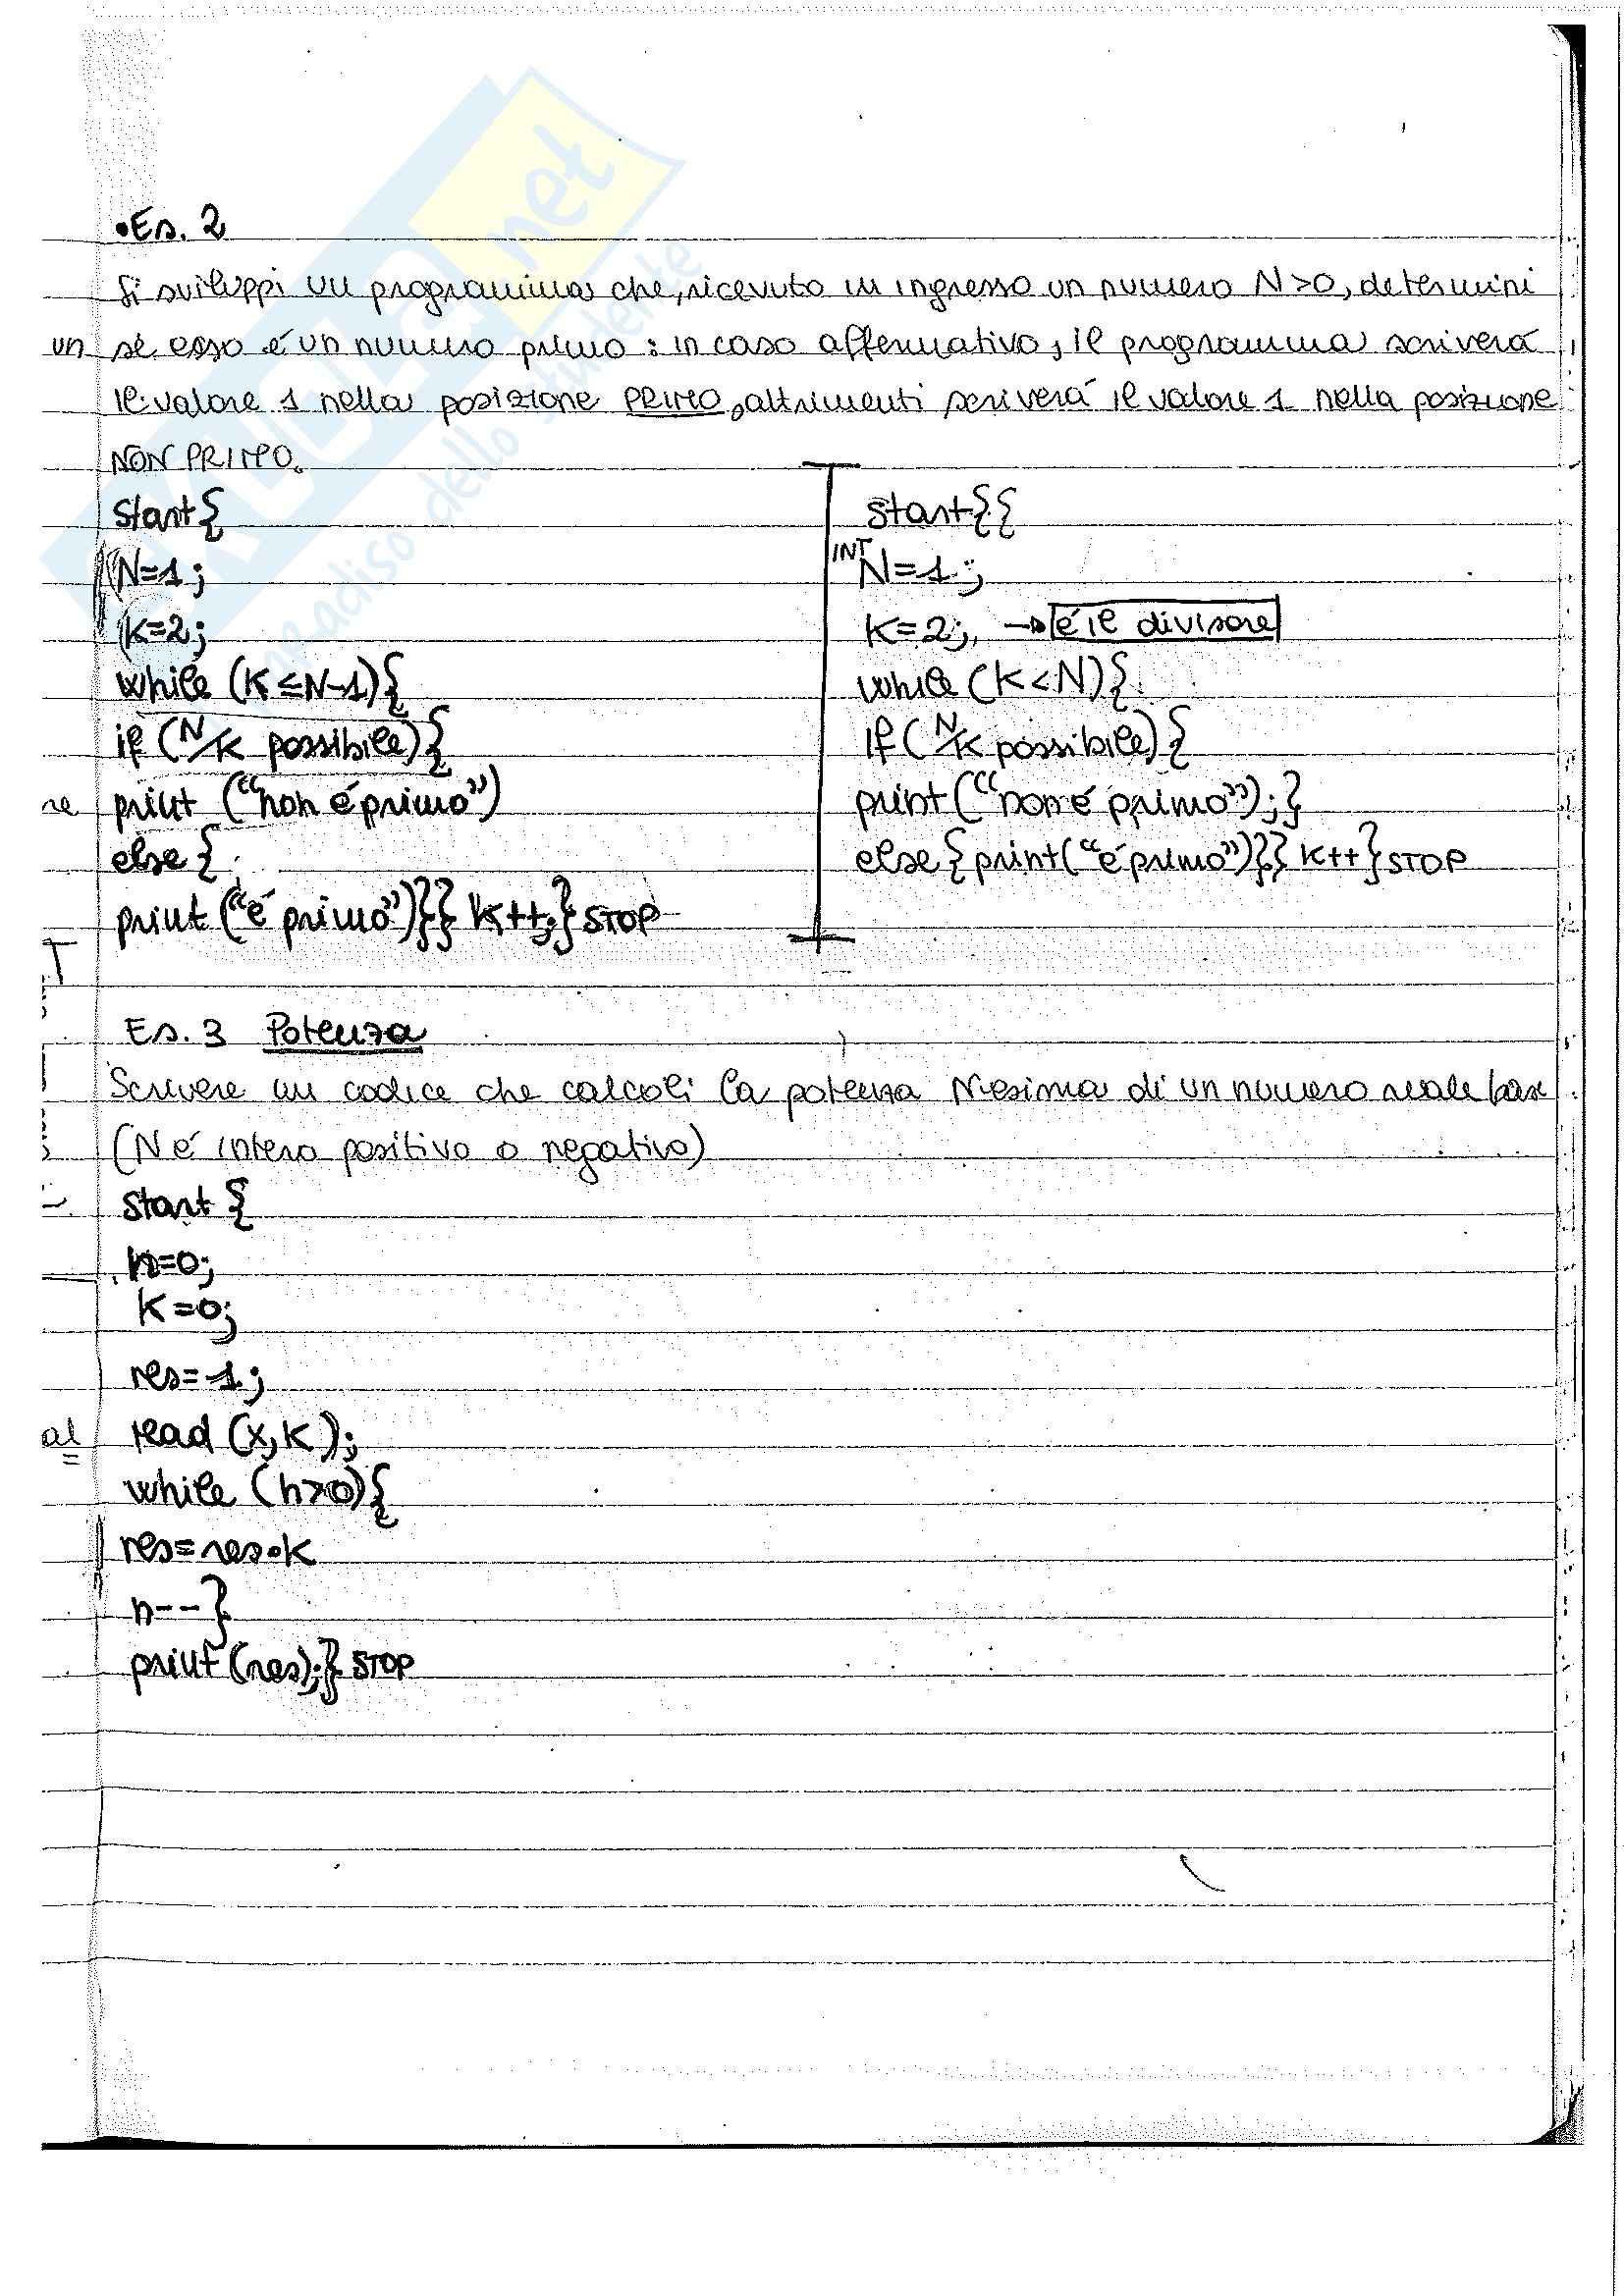 •Es. 2
Si sviluppi un programma che, ricevuto in ingresso un numero N>0, determini
un
se esso é un numero primo: in caso affermativo, il programma scriverá
il valore 1 nella posizione PRIMO, altrimenti scriverá il valore 1 nella posizione
NON PRIMO.
Start{
N=1;
K=2;
while (K≤N-1){
if (N/K possibile){
re
print ("non é primo")
else {
print ("é primo")}} K++;} STOP
Start{{
INT N=1;
K=2; → é il divisore
while (K<N){
If (N/K possibile){
print("non é primo");}
else{print("é primo")}} K++}STOP
Es. 3 Potenza
Scrivere un codice che calcoli la potenza Nesima di un numero reale base
(N é intero positivo o negativo)
Start {
n=0;
K=0;
res=1;
al
read (x,K);
while (n>0){
res=res•K
n--}
print (res);} STOP
net
paradiso dello studente